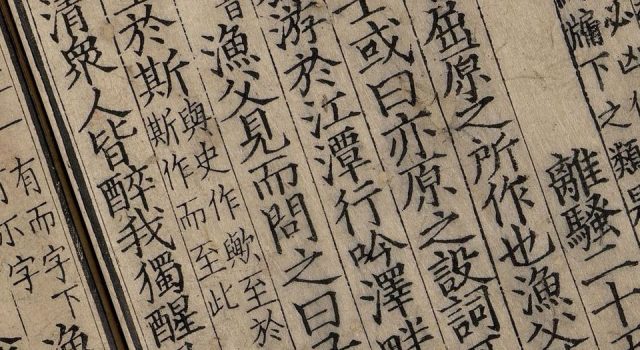 牖下之類
離騷二十
屈原之所作也漁父
或曰亦原之設詞
游於江潭行吟澤畔
漁父見而問之曰子
於斯
與史作歟至於
斯作而至此
清衆人皆醉我獨醒
有而字下
亦字
漁